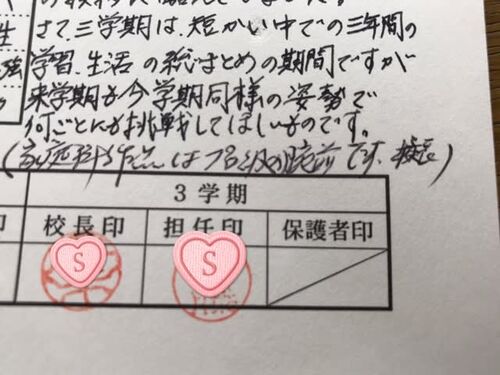 さて、三学期は、短かい中での三年間の
学習、生活の総まとめの期間ですが
来学期も今学期同様の姿勢で
何ごとにも挑戦してほしいものです。
はプロ級の腕前です。校長)
3学期
校長印 担任印 保護者印
S S